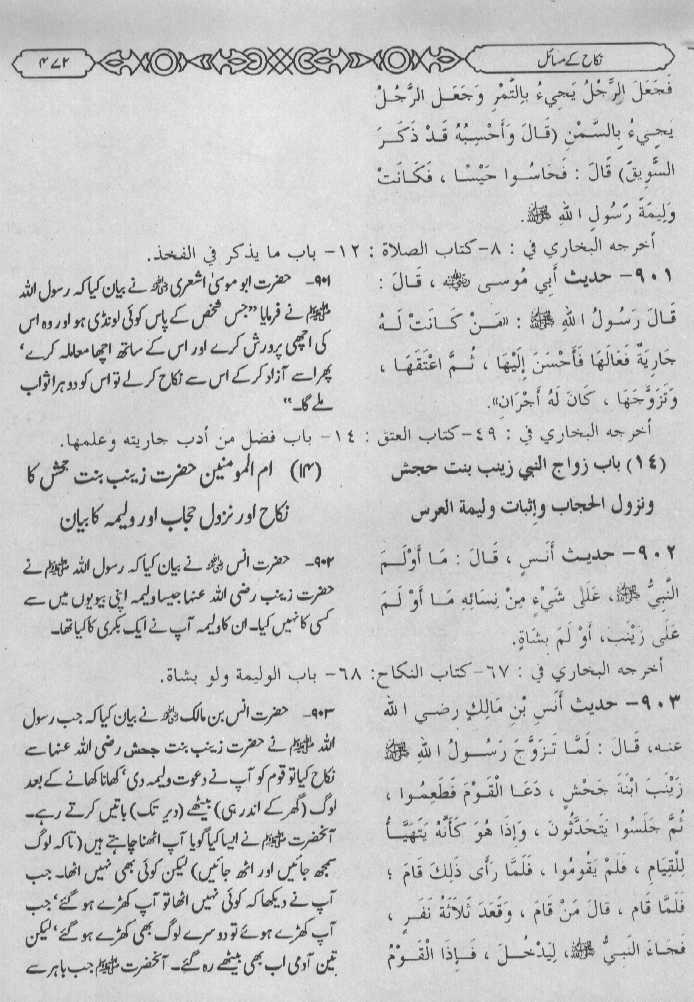 نکاح کے مسائل
۴۷۲
فَجَعَلَ الرَّجُلُ يَجِيءُ بِالتَّمْرِ وَجَعَلَ الرَّجُلُ
يَجِيءُ بِالسَّمْنِ (قَالَ وَأَحْسِبُهُ قَدْ ذَكَرَ
السَّوِيقَ) قَالَ : فَحَاسُوا حَيْسًا ، فَكَانَتْ
وَلِيمَةَ رَسُولِ اللهِ ﷺ.
أخرجه البخاري في : ٨-كتاب الصلاة : ١٢- باب ما يذكر في الفخذ.
٩٠١- حديث أَبِي مُوسى ، قَالَ :
قَالَ رَسُولُ اللهِ ﷺ : «مَنْ كَانَتْ لَهُ
جَارِيَةٌ فَعَالَهَا فَأَحْسَنَ إِلَيْهَا ، ثُمَّ اعْتَقَهَا ،
وَتَزَوَّجَهَا ، كَانَ لَهُ أَجْرَانِ».
۹۰۱- حضرت ابو موسیٰ اشعری نے بیان کیا کہ رسول اللہ
ﷺ نے فرمایا ’’جس شخص کے پاس کوئی لونڈی ہو اور وہ اس
کی اچھی پرورش کرے اور اس کے ساتھ اچھا معاملہ کرے‘
پھر اسے آزاد کر کے اس سے نکاح کرلے تو اس کو دوہرا ثواب
ملے گا۔‘‘
أخرجه البخاري في : ٤٩-كتاب العتق : ١٤- باب فضل من أدب جاريته وعلمها.
(١٤) باب زواج النبي زينب بنت حجش
ونزول الحجاب وإثبات وليمة العرس
(۱۴) ام المومنین حضرت زینب بنت جحش کا
نکاح اور نزول حجاب اور ولیمہ کا بیان
٩٠٢- حديث أَنَسٍ ، قَالَ : مَا أَوْلَمَ
النَّبِيُّ ﷺ، عَلَى شَيْءٍ مِنْ نِسَائِهِ مَا أَوْ لَمَ
عَلَى زَيْنَبَ، أَوْ لَمَ بِشَاةٍ.
۹۰۲- حضرت انس نے بیان کیا کہ رسول اللہ ﷺ نے
حضرت زینب رضی اللہ عنہا جیسا ولیمہ اپنی بیویوں میں سے
کسی کا نہیں کیا۔ ان کا ولیمہ آپ نے ایک بکری کا کیا تھا۔
أخرجه البخاري في : ٦٧-كتاب النكاح: ٦٨- باب الوليمة ولو بشاة.
٩٠٣- حديث أَنَسِ بْنِ مَالِكٍ رضي الله
عنه، قَالَ : لَمَّا تَزَوَّجَ رَسُولُ اللهِ ﷺ
زَيْنَبَ ابْنَةَ جَحْشٍ ، دَعَا الْقَوْمَ فَطَعِمُوا ،
ثُمَّ جَلَسُوا يَتَحَدَّثُونَ ، وَإِذَا هُوَ كَأَنَّهُ يَتَهَيَّأُ
لِلْقِيَامِ ، فَلَمْ يَقُومُوا ، فَلَمَّا رَأَى ذَلِكَ قَامَ ؛
فَلَمَّا قَامَ ، قَامَ مَنْ قَامَ ، وَقَعَدَ ثَلَاثَةُ نَفَرٍ ،
فَجَاءَ النَّبِيُّ ﷺ، لِيَدْخُلَ ، فَإِذَا الْقَوْمُ
۹۰۳- حضرت انس بن مالک نے بیان کیا کہ جب رسول
اللہ ﷺ نے حضرت زینب بنت جحش رضی اللہ عنہا سے
نکاح کیا تو قوم کو آپ نے دعوت ولیمہ دی‘ کھانا کھانے کے بعد
لوگ (گھر کے اندر ہی) بیٹھے (دیر تک) باتیں کرتے رہے۔
آنحضرت ﷺ نے ایسا کیا گویا آپ اٹھنا چاہتے ہیں (تاکہ لوگ
سمجھ جائیں اور اٹھ جائیں) لیکن کوئی بھی نہیں اٹھا۔ جب
آپ نے دیکھا کہ کوئی نہیں اٹھتا تو آپ کھڑے ہو گئے‘ جب
آپ کھڑے ہوئے تو دوسرے لوگ بھی کھڑے ہو گئے‘ لیکن
تین آدمی اب بھی بیٹھے رہ گئے۔ آنحضرت ﷺ جب باہر سے